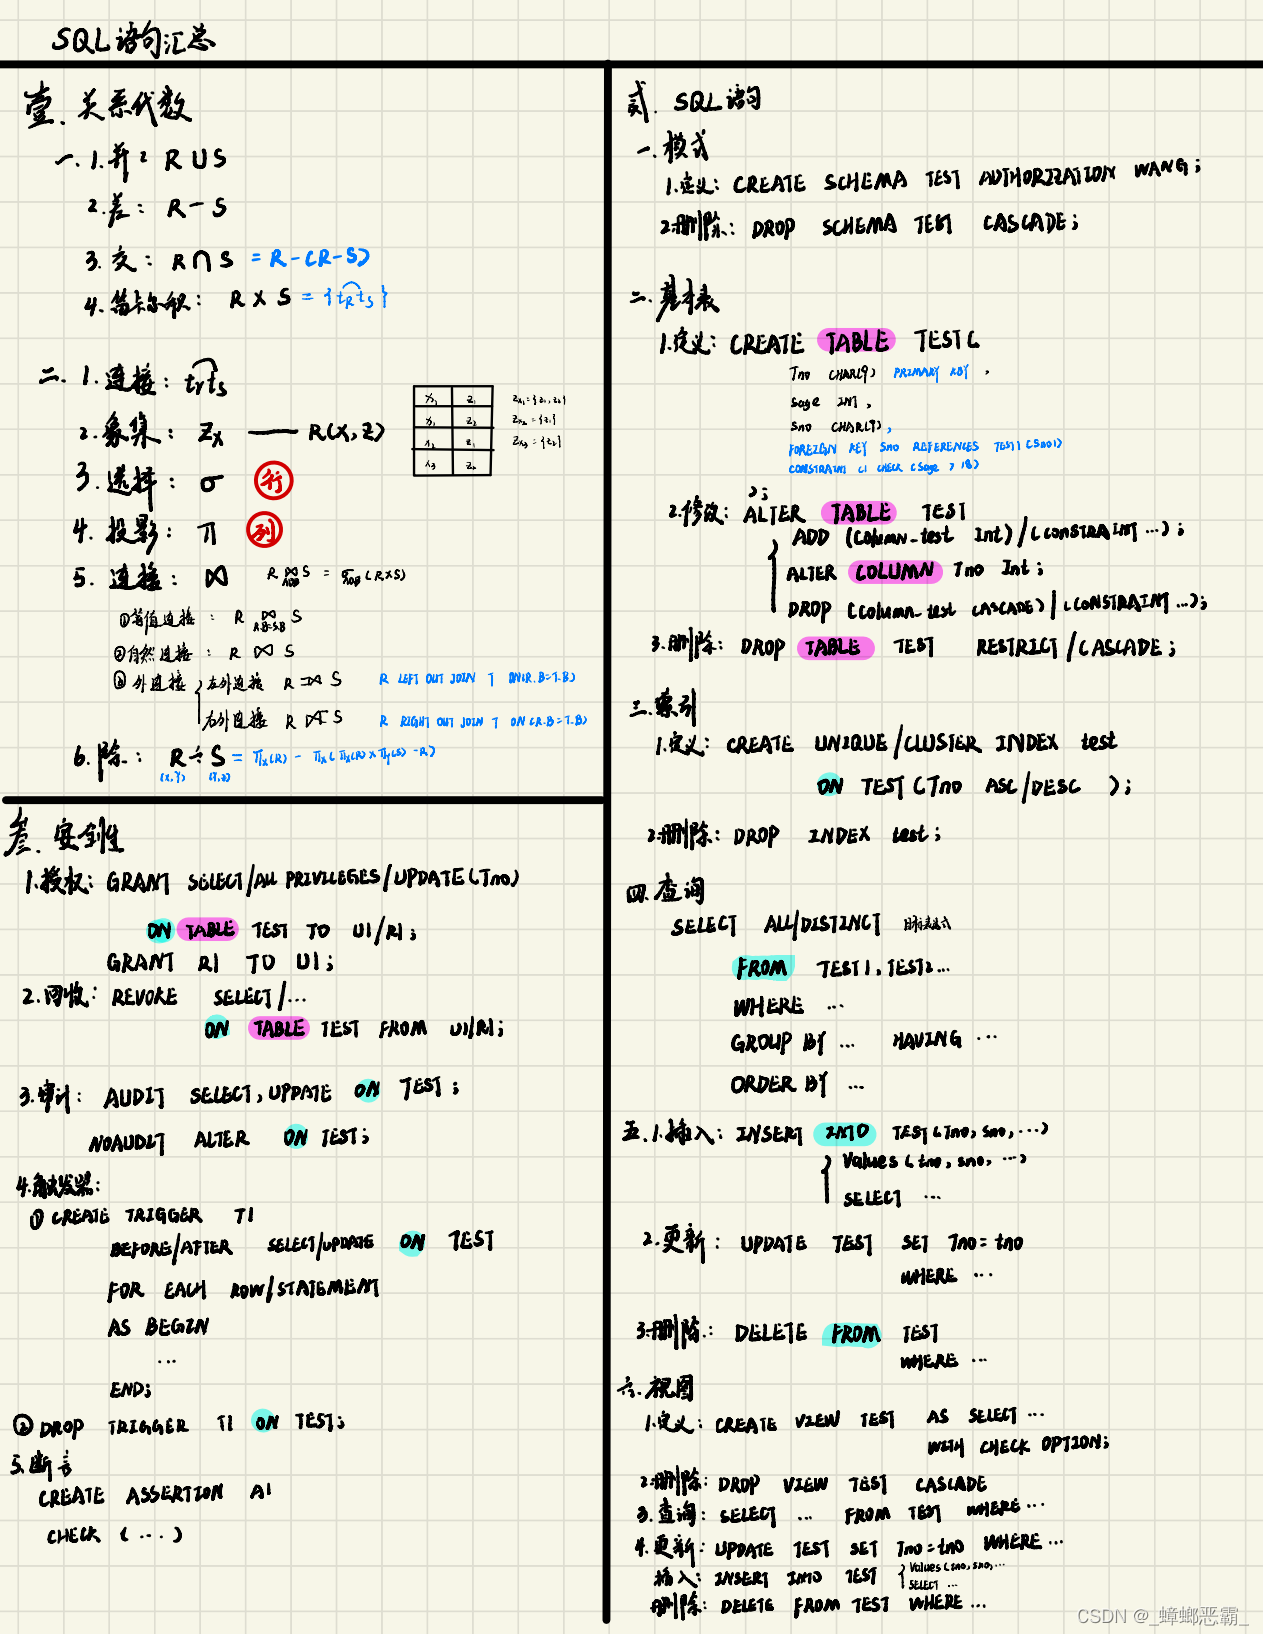 SQL语句汇总
壹. 关系代数
一. 1. 并: R ∪ S
2. 差: R - S
3. 交: R ∩ S = R-(R-S)
4. 笛卡尔积: R × S = {tRtS}
二. 1. 连接: trts
2. 象集: Zx —— R(X,Z)
X1 Z1
X1 Z2
X2 Z1
X3 Z2
Zx1={Z1,Z2}
Zx2={Z1}
Zx3={Z2}
3. 选择: σ 行
4. 投影: π 列
5. 连接: ⋈ R ⋈ S = σ (R×S)
AθB AθB
①等值连接: R ⋈ S
R.B=S.B
②自然连接: R ⋈ S
③外连接 { 左外连接 R ⟕ S R LEFT OUT JOIN T ON(R.B=T.B)
右外连接 R ⟖ S R RIGHT OUT JOIN T ON(R.B=T.B)
6. 除: R ÷ S = πx(R) - πx(πx(R)×πy(S)-R)
(X,Y) (Y,Z)
叁. 安全性
1. 授权: GRANT SELECT/ALL PRIVILEGES/UPDATE(Tno)
ON TABLE TEST TO U1/R1;
GRANT R1 TO U1;
2. 回收: REVOKE SELECT/...
ON TABLE TEST FROM U1/R1;
3. 审计: AUDIT SELECT, UPDATE ON TEST;
NOAUDIT ALTER ON TEST;
4. 触发器:
① CREATE TRIGGER T1
BEFORE/AFTER SELECT/UPDATE ON TEST
FOR EACH ROW/STATEMENT
AS BEGIN
...
END;
② DROP TRIGGER T1 ON TEST;
5. 断言
CREATE ASSERTION A1
CHECK (...)
贰. SQL语句
一. 模式
1. 定义: CREATE SCHEMA TEST AUTHORIZATION WANG;
2. 删除: DROP SCHEMA TEST CASCADE;
二. 基本表
1. 定义: CREATE TABLE TEST(
Tno CHAR(9) PRIMARY KEY,
Sage INT,
Sno CHAR(9),
FOREIGN KEY Sno REFERENCES TEST1(Sno1)
CONSTRAINT C1 CHECK (Sage > 18)
);
2. 修改: ALTER TABLE TEST
{ ADD (Column_test Int)/(CONSTRAINT ...);
ALTER COLUMN Tno Int;
DROP (Column_test CASCADE)/(CONSTRAINT ...);
3. 删除: DROP TABLE TEST RESTRICT/CASCADE;
三. 索引
1. 定义: CREATE UNIQUE/CLUSTER INDEX test
ON TEST(Tno ASC/DESC );
2. 删除: DROP INDEX test;
四. 查询
SELECT ALL/DISTINCT 目标表达式
FROM TEST1, TEST2...
WHERE ...
GROUP BY ... HAVING ...
ORDER BY ...
五. 1. 插入: INSERT INTO TEST(Tno, Sno, ...)
{ Values (tno, sno, ...)
SELECT ...
2. 更新: UPDATE TEST SET Tno=tno
WHERE ...
3. 删除: DELETE FROM TEST
WHERE ...
六. 视图
1. 定义: CREATE VIEW TEST AS SELECT ...
WITH CHECK OPTION;
2. 删除: DROP VIEW TEST CASCADE
3. 查询: SELECT ... FROM TEST WHERE ...
4. 更新: UPDATE TEST SET Tno=tno WHERE ...
插入: INSERT INTO TEST { Values (tno, sno, ...
SELECT ...
删除: DELETE FROM TEST WHERE ...
CSDN @_蟑螂恶霸_